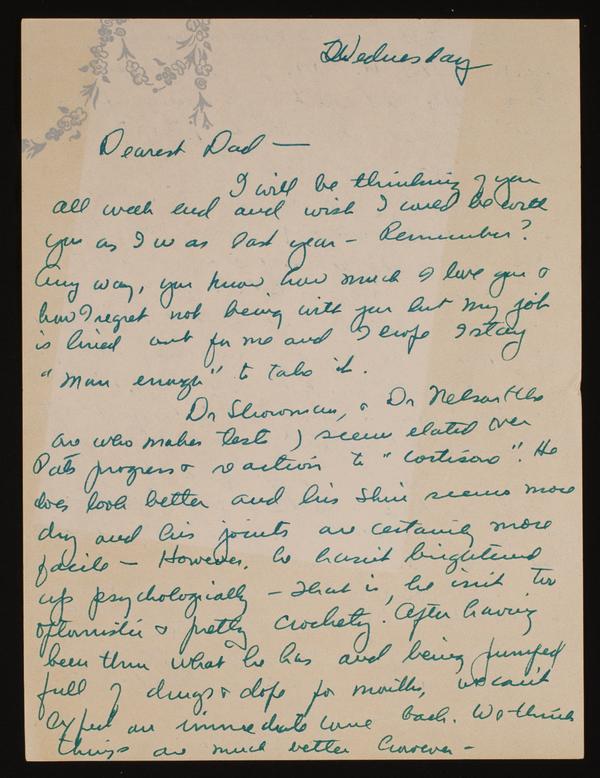 Wednesday
Dearest Dad —
I will be thinking of you
all week end and wish I could be with
you as I was last year — Remember?
Any way, you know how much I love you &
how I regret not being with you but my job
is lined out for me and I hope I stay
"man enough" to take it.
Dr Showman, & Dr Nelson (the
one who makes tests) seem elated over
Pats progress & reaction to "cortisone". He
does look better and his skin seems more
dry and his joints are certainly more
facile — However, he hasn't brightened
up psychologically — that is, he isn't too
optomistic & pretty crochety. After having
been thru what he has and being pumped
full of drugs & dope for months, we can't
expect an immediate come back. We think
things are much better however —